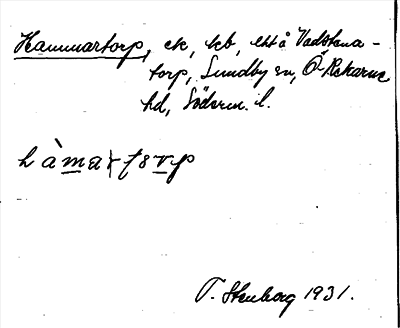 Hammartorp, ek, lkb, ett å Vadstena-
torp, Sundby sn, Ö Rekarne
hd, Söderm. l.
hàmartorp
T. Stenborg 1931.